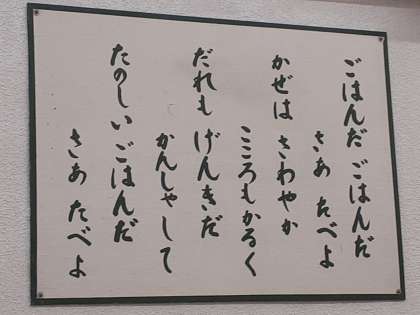 ごはんだ ごはんだ
さあ たべよ
かぜは さわやか
こころもかるく
だれも げんきだ
かんしゃして
たのしい ごはんだ
さあ たべよ